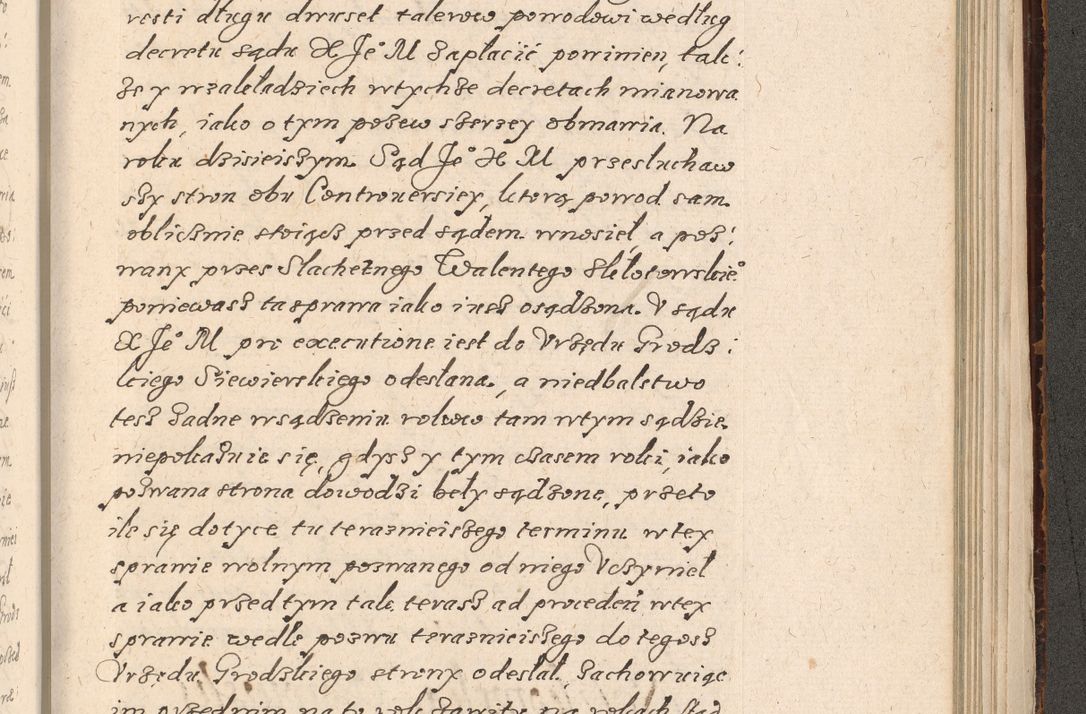 resti długu dwuset talerow powodowi według
decretu sądu X Je° M zapłacić powinien, tak:
że y wzakładziech wtychże decretach mianowa
nych, iako o tym pozew szerzey obmawia. Na
roku dzisieiszym Sąd Je° X M przesłuchaw
szy stron obu Controuersiey, ktorą powod sam
oblicznie stoiącz przed sądem wnosieł, a poz:
wany przes Slachetnego Walentego Skłotowskie°
poniewasz ta sprawa iako iusz osądzona. V sądu
X Je° M pro executione iest do Vrzędu Grodz:
kiego Siewierskiego odesłana, a niedbalstwo
tesz żadne wsądzeniu rokow tam wtym sądzie
niepokażuie się, gdysz y tym czasem roki, iako
pozwana strona dowodzi beły sądzone, przeto
ile się dotyce tu teraznieiszego terminu wtey
sprawie wolnym pozwanego od niego Vczynieł
a iako przed tym tak terasz ad procedeń wtey
sprawie wedle pozwu teraznieiszego do tegosz
Vrzędu Grodzkiego strony odesłał, Zachowuiąc
im przednim na to rok zawity na rokach